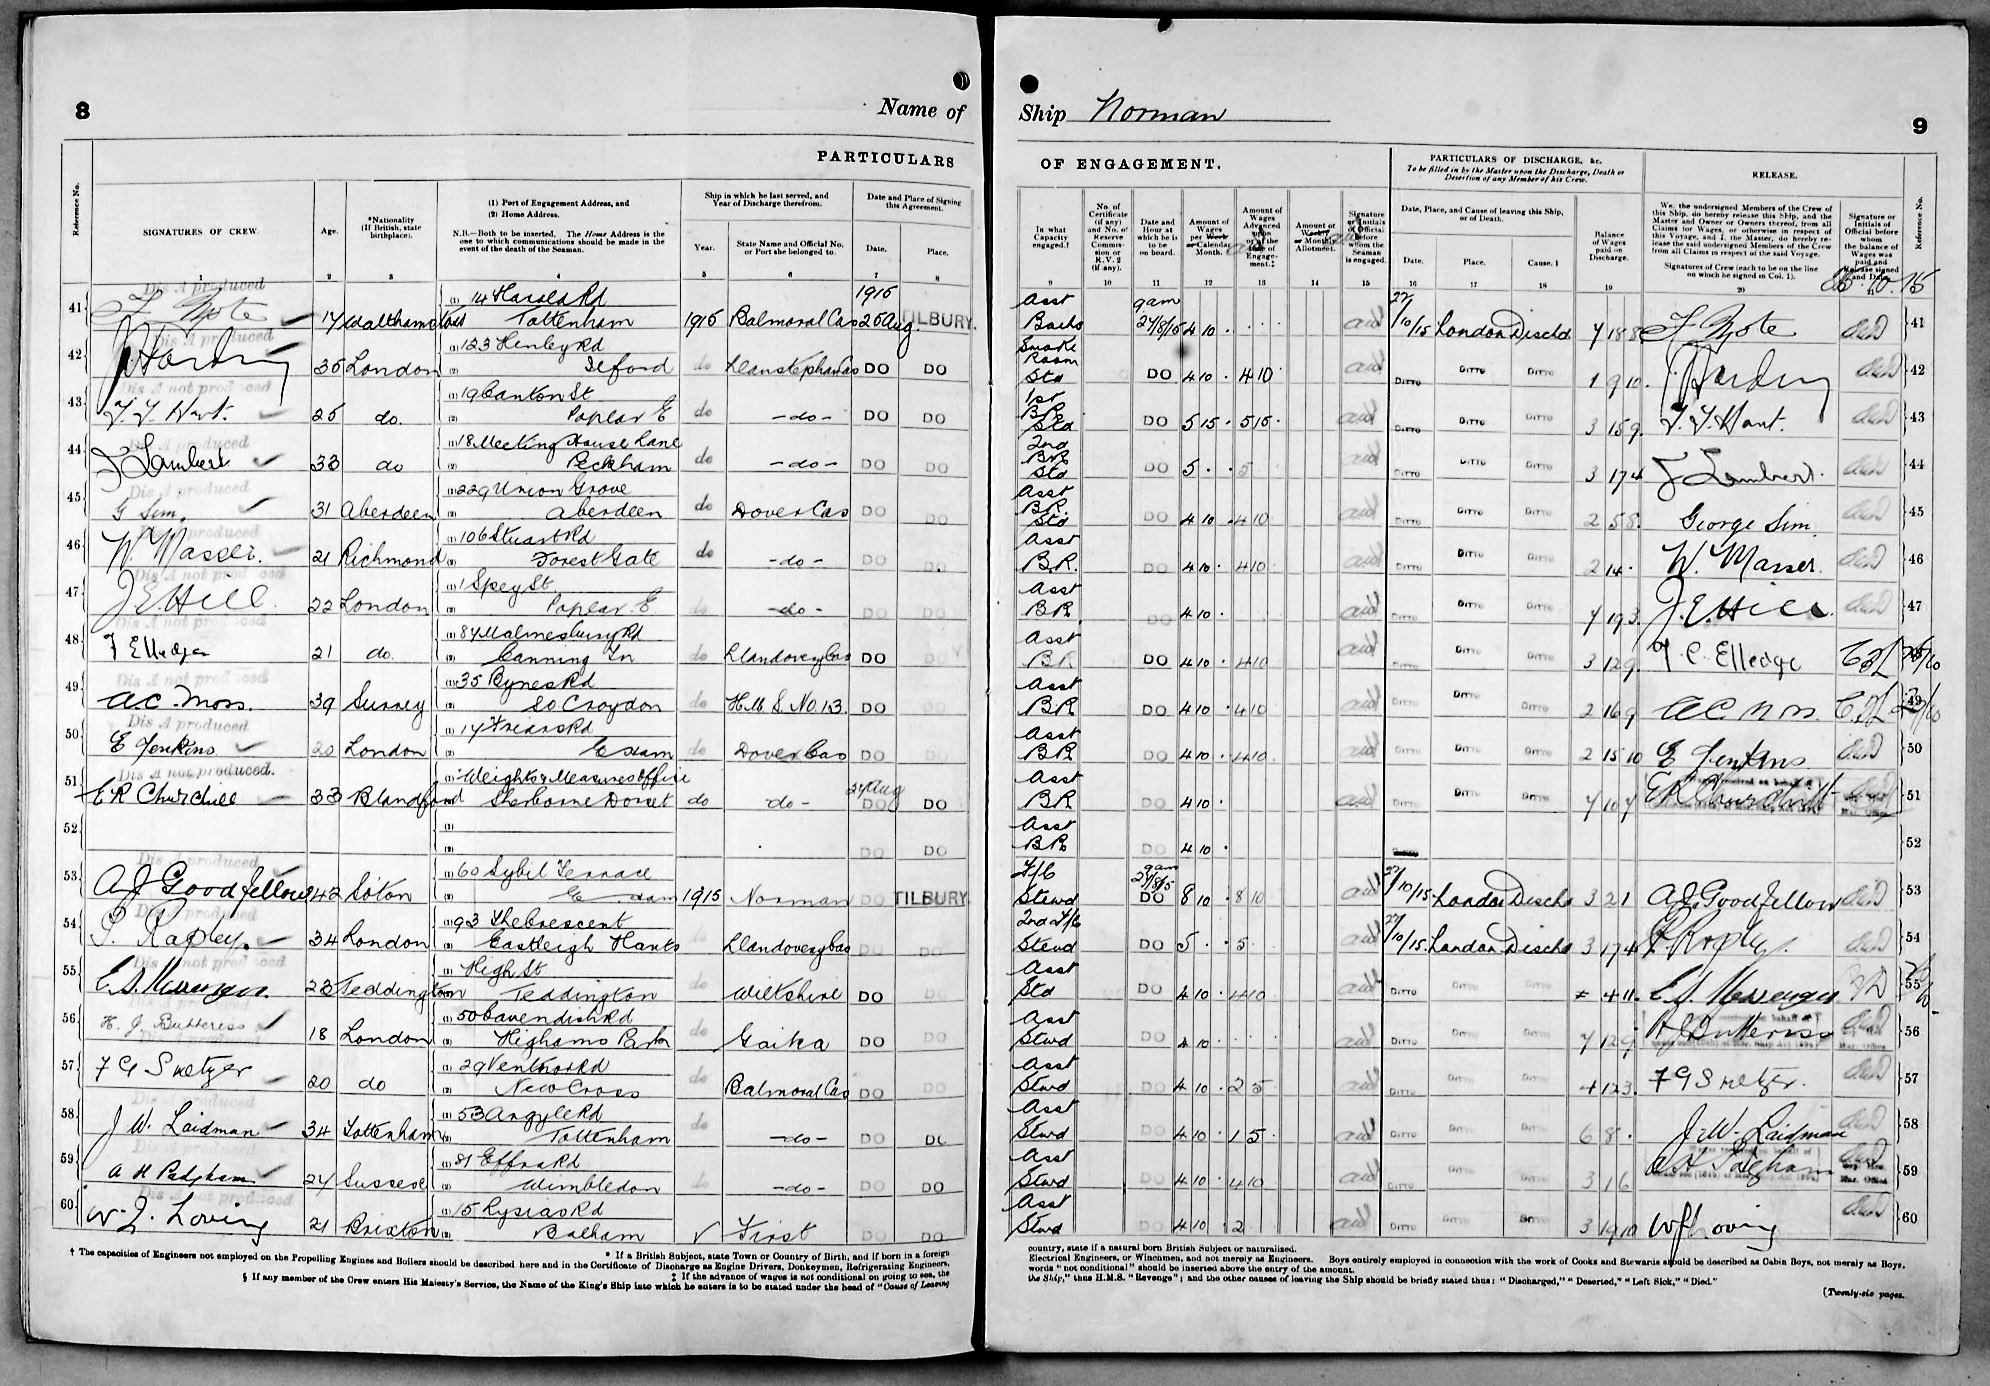 8
Name of
PARTICULARS
Reference No.
SIGNATURES OF CREW.
Age.
*Nationality (If British, state birthplace).
(1) Port of Engagement Address, and
(2) Home Address.
N.B.—Both to be inserted. The Home Address is the one to which communications should be made in the event of the death of the Seaman.
Ship in which he last served, and Year of Discharge therefrom.
Year.
State Name and Official No. or Port she belonged to.
Date and Place of Signing this Agreement.
Date.
Place.
1 2 3 4 5 6 7 8
Dis A produced
41 17 Walthamstow (1) 14 Harold Rd
Tottenham 1915 Balmoral Cas 26 Aug. TILBURY.
Dis A produced
42 J Harding 36 London (1) 123 Henley Rd
(2) Ilford do Llanstephan Cas DO DO
Dis A not produced
43 Hart 26 do. (1) 19 Canton St
(2) Poplar E do -do- DO DO
Dis A produced
44 J Lambert 33 do (1) 18 Meeting House Lane
(2) Peckham do -do- DO DO
Dis A produced
45 G Sim. 31 Aberdeen (1) 229 Union Grove
(2) Aberdeen do Dover Cas DO DO
Dis A produced
46 W. Masser. 21 Richmond (1) 106 Stuart Rd
(2) Forest Gate do -do- DO
Dis A not produced
47 J. E. Hill 22 London (1) 1 Spey St.
(2) Poplar. E. do -do- DO DO
Dis A not produced
48 F Elledge 21 do. (1) 84 Malmesbury Rd
(2) Canning Tn do Llandovery Cas DO
Dis A not produced
49 A.C. Moss. 39 Surrey (1) 35 Bynes Rd
(2) So Croydon do H.M.S. No. 13. DO DO
Dis A produced
50 E Jenkins 20 London (1) 14 Friars Rd
(2) E Ham do Dover Cas DO DO
Dis A not produced.
51 E R Churchill 33 Blandford (1) Weights & Measures Office
Sherborne Dorset do do- 27 Aug DO DO
52 (1)
(2) DO DO
Dis A produced
53 A J Goodfellow 42 Soton (1) 60 Sybil Terrace
(2) 1915 Norman DO TILBURY.
Dis A produced
54 Rapley. 34 London (1) 93 The Crescent
(2) Eastleigh Hants Llandovery Cas DO
Dis A not produced
55 E. S. Messenger 23 Teddington (1) High St
Teddington do Wiltshire DO
56 H. J. Butteriss 18 London (1) 50 Cavendish Rd
(2) Highams Park do Gaika DO DO
57 F G Smetzer 20 do (1) 29 Ventnor Rd
(2) New Cross do Balmoral Cas DO DO
58 J W. Laidman 34 Tottenham (1) 53 Argyle Rd
Tottenham do -do- DO DO
59 A H Padgham 24 Sussex (1) 81 Effra Rd
(2) Wimbledon do -do- DO DO
60 W. J. Loving 21 Brixton (1) 15 Rysias Rd
(2) Balham ✓ First DO DO
† The capacities of Engineers not employed on the Propelling Engines and Boilers should be described here and in the Certificate of Discharge as Engine Drivers, Donkeymen, Refrigerating Engineers,
* If a British Subject, state Town or Country of Birth, and if born in a foreign
‡ If the advance of wages is not conditional on going to sea, the
§ If any member of the Crew enters His Majesty's Service, the Name of the King's Ship into which he enters is to be stated under the head of "Cause of Leaving
Ship Norman
9
OF ENGAGEMENT.
PARTICULARS OF DISCHARGE, &c.
To be filled in by the Master upon the Discharge, Death or Desertion of any Member of his Crew.
RELEASE.
In what Capacity engaged.†
No. of Certificate (if any) and No. of Reserve Commission or R.V. 2 (if any).
Date and Hour at which he is to be on board.
Amount of Wages per Week or Calendar Month.
Amount of Wages Advanced upon or at time of Engagement.‡
Amount of Weekly or Monthly Allotment.
Signature or Initials of Official before whom the Seaman is engaged.
Date, Place, and Cause of leaving this Ship, or of Death.
Date. Place. Cause. §
Balance of Wages paid on Discharge.
We, the undersigned Members of the Crew of this Ship, do hereby release this Ship, and the Master and Owner or Owners thereof, from all Claims for Wages, or otherwise in respect of this Voyage, and I, the Master, do hereby release the said undersigned Members of the Crew from all Claims in respect of the said Voyage.
Signatures of Crew (each to be on the line on which he signed in Col. 1).
Signature or Initials of Official before whom the balance of Wages was paid and Release signed and Date.
Reference No.
9 10 11 12 13 14 15 16 17 18 19 20 21
Asst Barks 9 am 27/8/15 4 10 27/10/15 London Dischd 7 18 8 41
Smoke Room Std DO 4 10 4 10 DITTO DITTO DITTO 1 9 10 J Harding 42
1st BR Std DO 5 15 5 15 DITTO DITTO DITTO 3 15 9 Hart. 43
2nd BR Std DO 5 5 DITTO DITTO DITTO 3 17 4 J Lambert. 44
Asst BR. Std DO 4 10 4 10 DITTO DITTO DITTO 2 5 8 George Sim. 45
Asst BR. DO 4 10 4 10 DITTO DITTO DITTO 2 14 W. Masser. 46
Asst BR DO 4 10 DITTO DITTO DITTO 7 19 3 J. E. Hill. 47
Asst BR DO 4 10 4 10 DITTO DITTO DITTO 3 12 9 F C Elledge 48
Asst BR DO 4 10 4 10 DITTO DITTO 2 16 9 A C Moss. 49
Asst BR DO 4 10 4 10 DITTO DITTO 2 15 10 E Jenkins 50
Asst BR DO 4 10 DITTO DITTO 7 10 7 E R Churchill 51
Asst BR DO 4 10 52
F/C Stewd 9 am 27/8/15 DO 8 10 8 10 27/10/15 London Dischd 3 2 1 A J Goodfellow 53
2nd F/C Stewd DO 5 5 27/10/15 London Dischd 3 17 4 Rapley 54
Asst Std DO 4 10 4 10 DITTO DITTO DITTO 4 11 E S Messenger 55
Asst Stwd DO 4 10 DITTO DITTO DITTO 7 12 9 H J Butteriss 56
Asst Stwd DO 4 10 2 5 DITTO DITTO DITTO 4 12 3 F G Smetzer. 57
Asst Stwd DO 4 10 1 5 DITTO DITTO DITTO 6 8 J. W. Laidman 58
Asst Stwd DO 4 10 4 10 DITTO DITTO DITTO 3 1 6 A H Padgham 59
Asst Stwd DO 4 10 2 DITTO DITTO DITTO 3 19 10 W J Loving 60
country, state if a natural born British Subject or naturalized.
Electrical Engineers, or Winchmen, and not merely as Engineers. Boys entirely employed in connection with the work of Cooks and Stewards should be described as Cabin Boys, not merely as Boys.
words "not conditional" should be inserted above the entry of the amount.
the Ship," thus H.M.S. "Revenge"; and the other causes of leaving the Ship should be briefly stated thus: "Discharged," "Deserted," "Left Sick," "Died."
(Twenty-six pages.